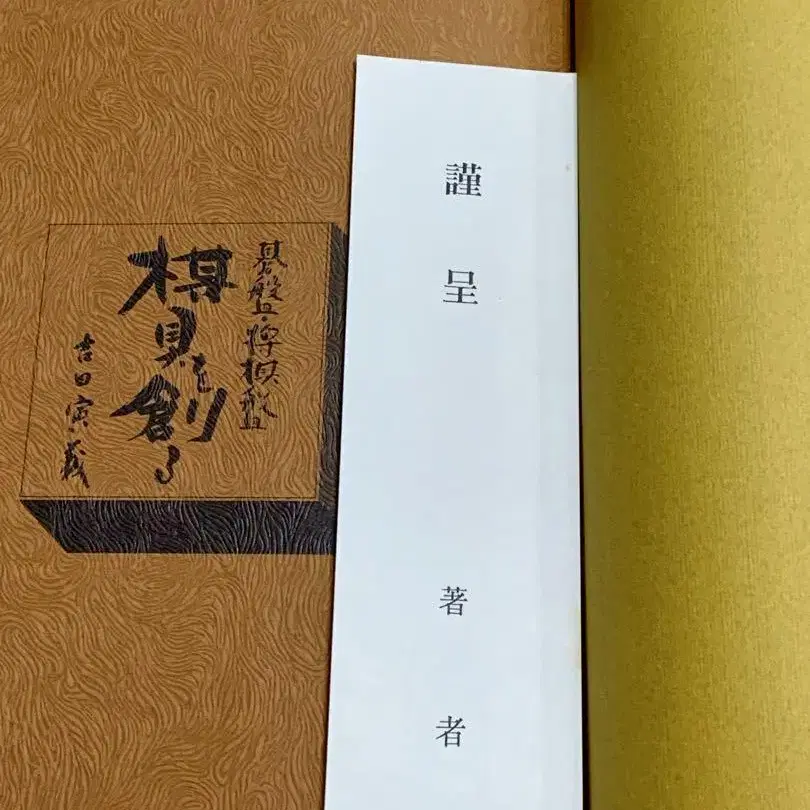 碁盤・将棋盤
棋具を創る
吉田寅義
謹呈
著者